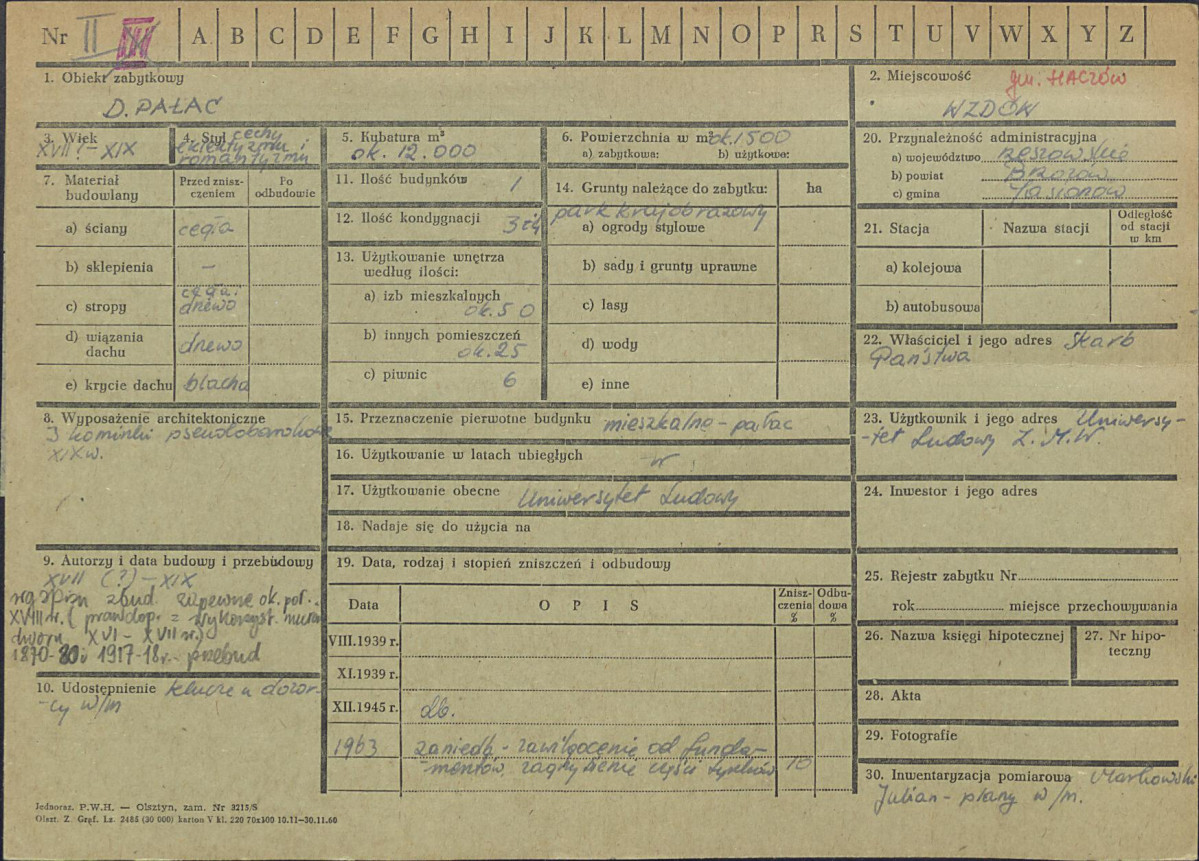 Nr II III A B C D E F G H I J K L M N O P R S T U V W X Y Z
1. Obiekt zabytkowy
D. PAŁAC
2. Miejscowość gm. HACZÓW
WZDÓW
3. Wiek
XVII? - XIX
4. Styl cechy
eklektyzmu i
romantyzmu
5. Kubatura m³
ok. 12.000
6. Powierzchnia w m² ok. 1500
a) zabytkowa: b) użytkowa:
7. Materiał
budowlany
Przed znisz-
czeniem
Po
odbudowie
a) ściany cegła
b) sklepienia —
c) stropy cegła i
drewo
d) wiązania
dachu drewo
e) krycie dachu blacha
8. Wyposażenie architektoniczne
3 kominki pseudobarokowe
XIX w.
9. Autorzy i data budowy i przebudowy
XVII (?) - XIX
zbud. zapewne ok. poł.
XVIII w. (prawdop. = wykorzyst. murów
dworu XVI - XVII w.)
1870-80 i 1917-18 r. - przebud
10. Udostępnienie klucze u dozor-
-cy w/m
11. Ilość budynków 1
12. Ilość kondygnacji 3
13. Użytkowanie wnętrza
według ilości:
a) izb mieszkalnych
ok. 50
b) innych pomieszczeń
ok. 25
c) piwnic 6
14. Grunty należące do zabytku: ha
park krajobrazowy
a) ogrody stylowe
b) sady i grunty uprawne
c) lasy
d) wody
e) inne
15. Przeznaczenie pierwotne budynku mieszkalne - pałac
16. Użytkowanie w latach ubiegłych
17. Użytkowanie obecne Uniwersytet Ludowy
18. Nadaje się do użycia na
19. Data, rodzaj i stopień zniszczeń i odbudowy
Data
O P I S
Znisz-
czenia
%
Odbu-
dowa
%
VIII.1939 r.
XI.1939 r.
XII.1945 r. db.
1963 zaniedb - zawilgocenie od funda-
-mentów, zagrzybienie części tynków 10
20. Przynależność administracyjna
a) województwo rzeszowskie
b) powiat Brzozów
c) gmina Jasionów
21. Stacja
Nazwa stacji
Odległość
od stacji
w km
a) kolejowa
b) autobusowa
22. Właściciel i jego adres Skarb
Państwa
23. Użytkownik i jego adres Uniwersy-
-tet Ludowy Z.M.W.
24. Inwestor i jego adres
25. Rejestr zabytku Nr
rok miejsce przechowywania
26. Nazwa księgi hipotecznej
27. Nr hipo-
teczny
28. Akta
29. Fotografie
30. Inwentaryzacja pomiarowa Markowski
Julian - plany w/m.
Jednoraz. P.W.H. — Olsztyn, zam. Nr 3215/S
Olszt. Z. Graf. Lz. 2485 (30 000) karton V kl. 220 70x100 10.11—30.11.60